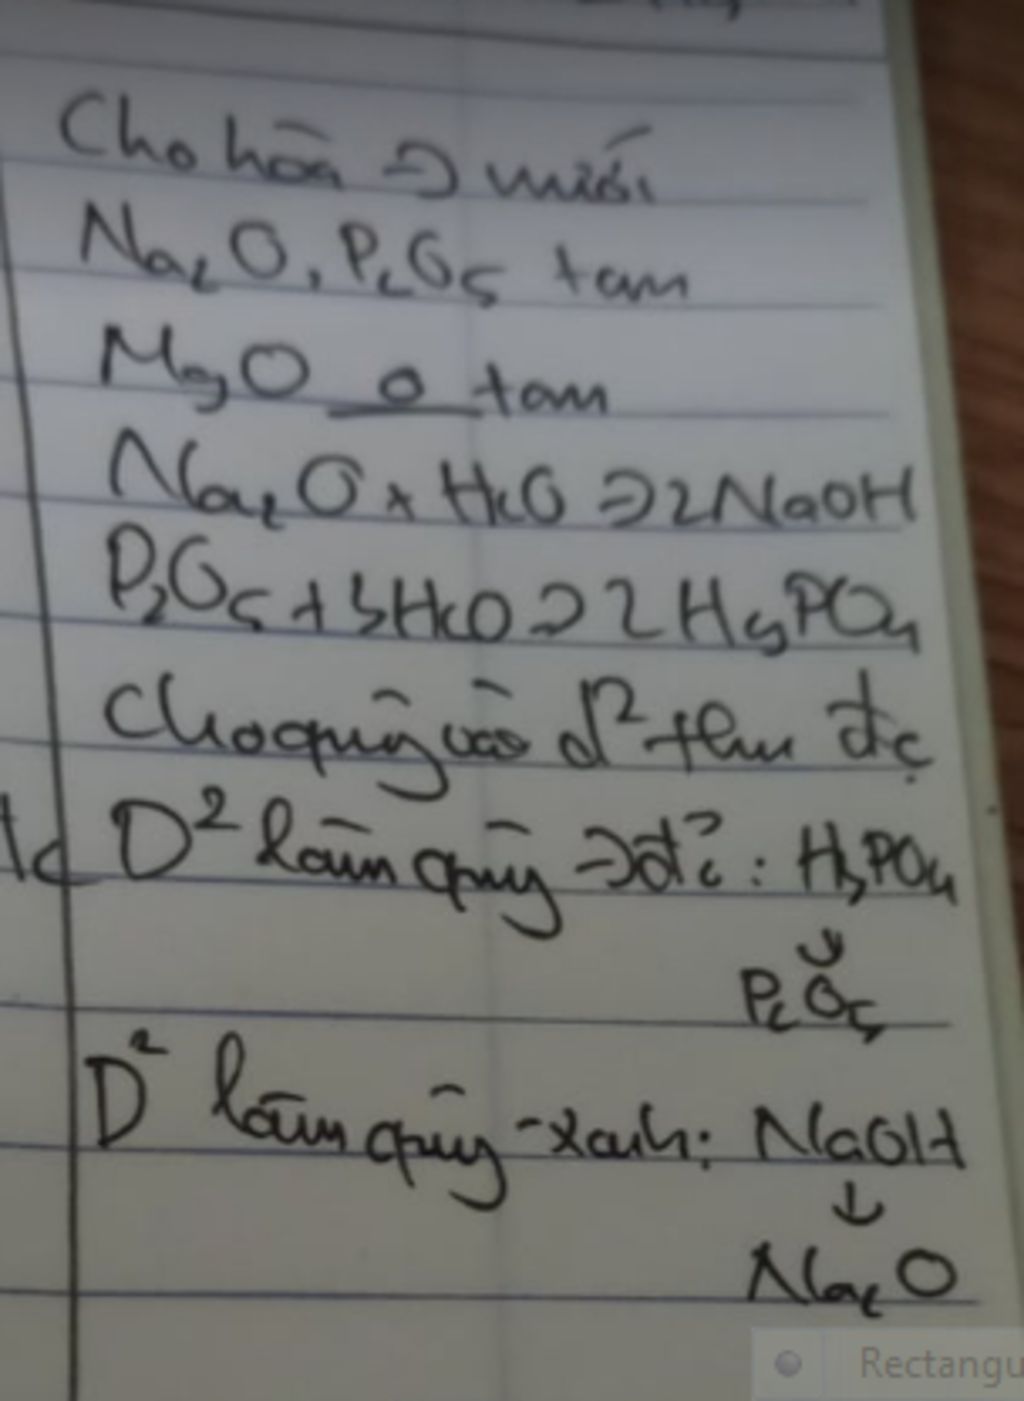 Cho hòa → muối
Na2O, P2O5 tan
MgO o tan
Na2O + H2O → 2NaOH
P2O5 + 3H2O → 2 H3PO4
Cho quỳ vào d² thu đc
D² làm quỳ → đỏ: H3PO4
↓
P2O5
D² làm quỳ - xanh: NaOH
↓
Na2O
Rectangu